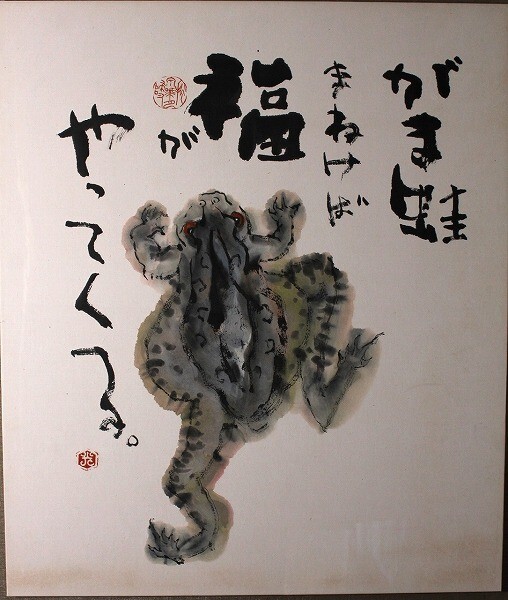 がま蛙
まねけば
福が
やってくる。